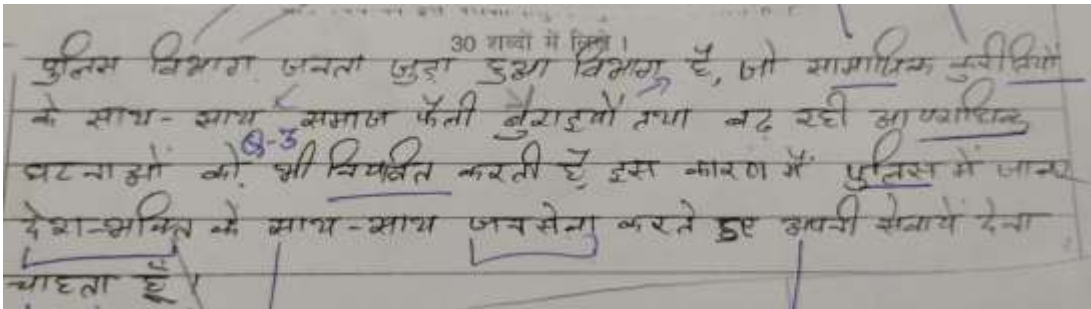 30 शब्दों में लिखें।
पुलिस विभाग जनता जुड़ा हुआ विभाग है, जो सामाजिक कुरीतियों
के साथ-साथ समाज फैली बुराइयों तथा बढ़ रही आपराधिक
Q-3
घटनाओं को भी नियंत्रित करती है इस कारण मैं पुलिस में जाकर
देश-भक्ति के साथ-साथ जनसेवा करते हुए अपनी सेवायें देना
चाहता हूँ।